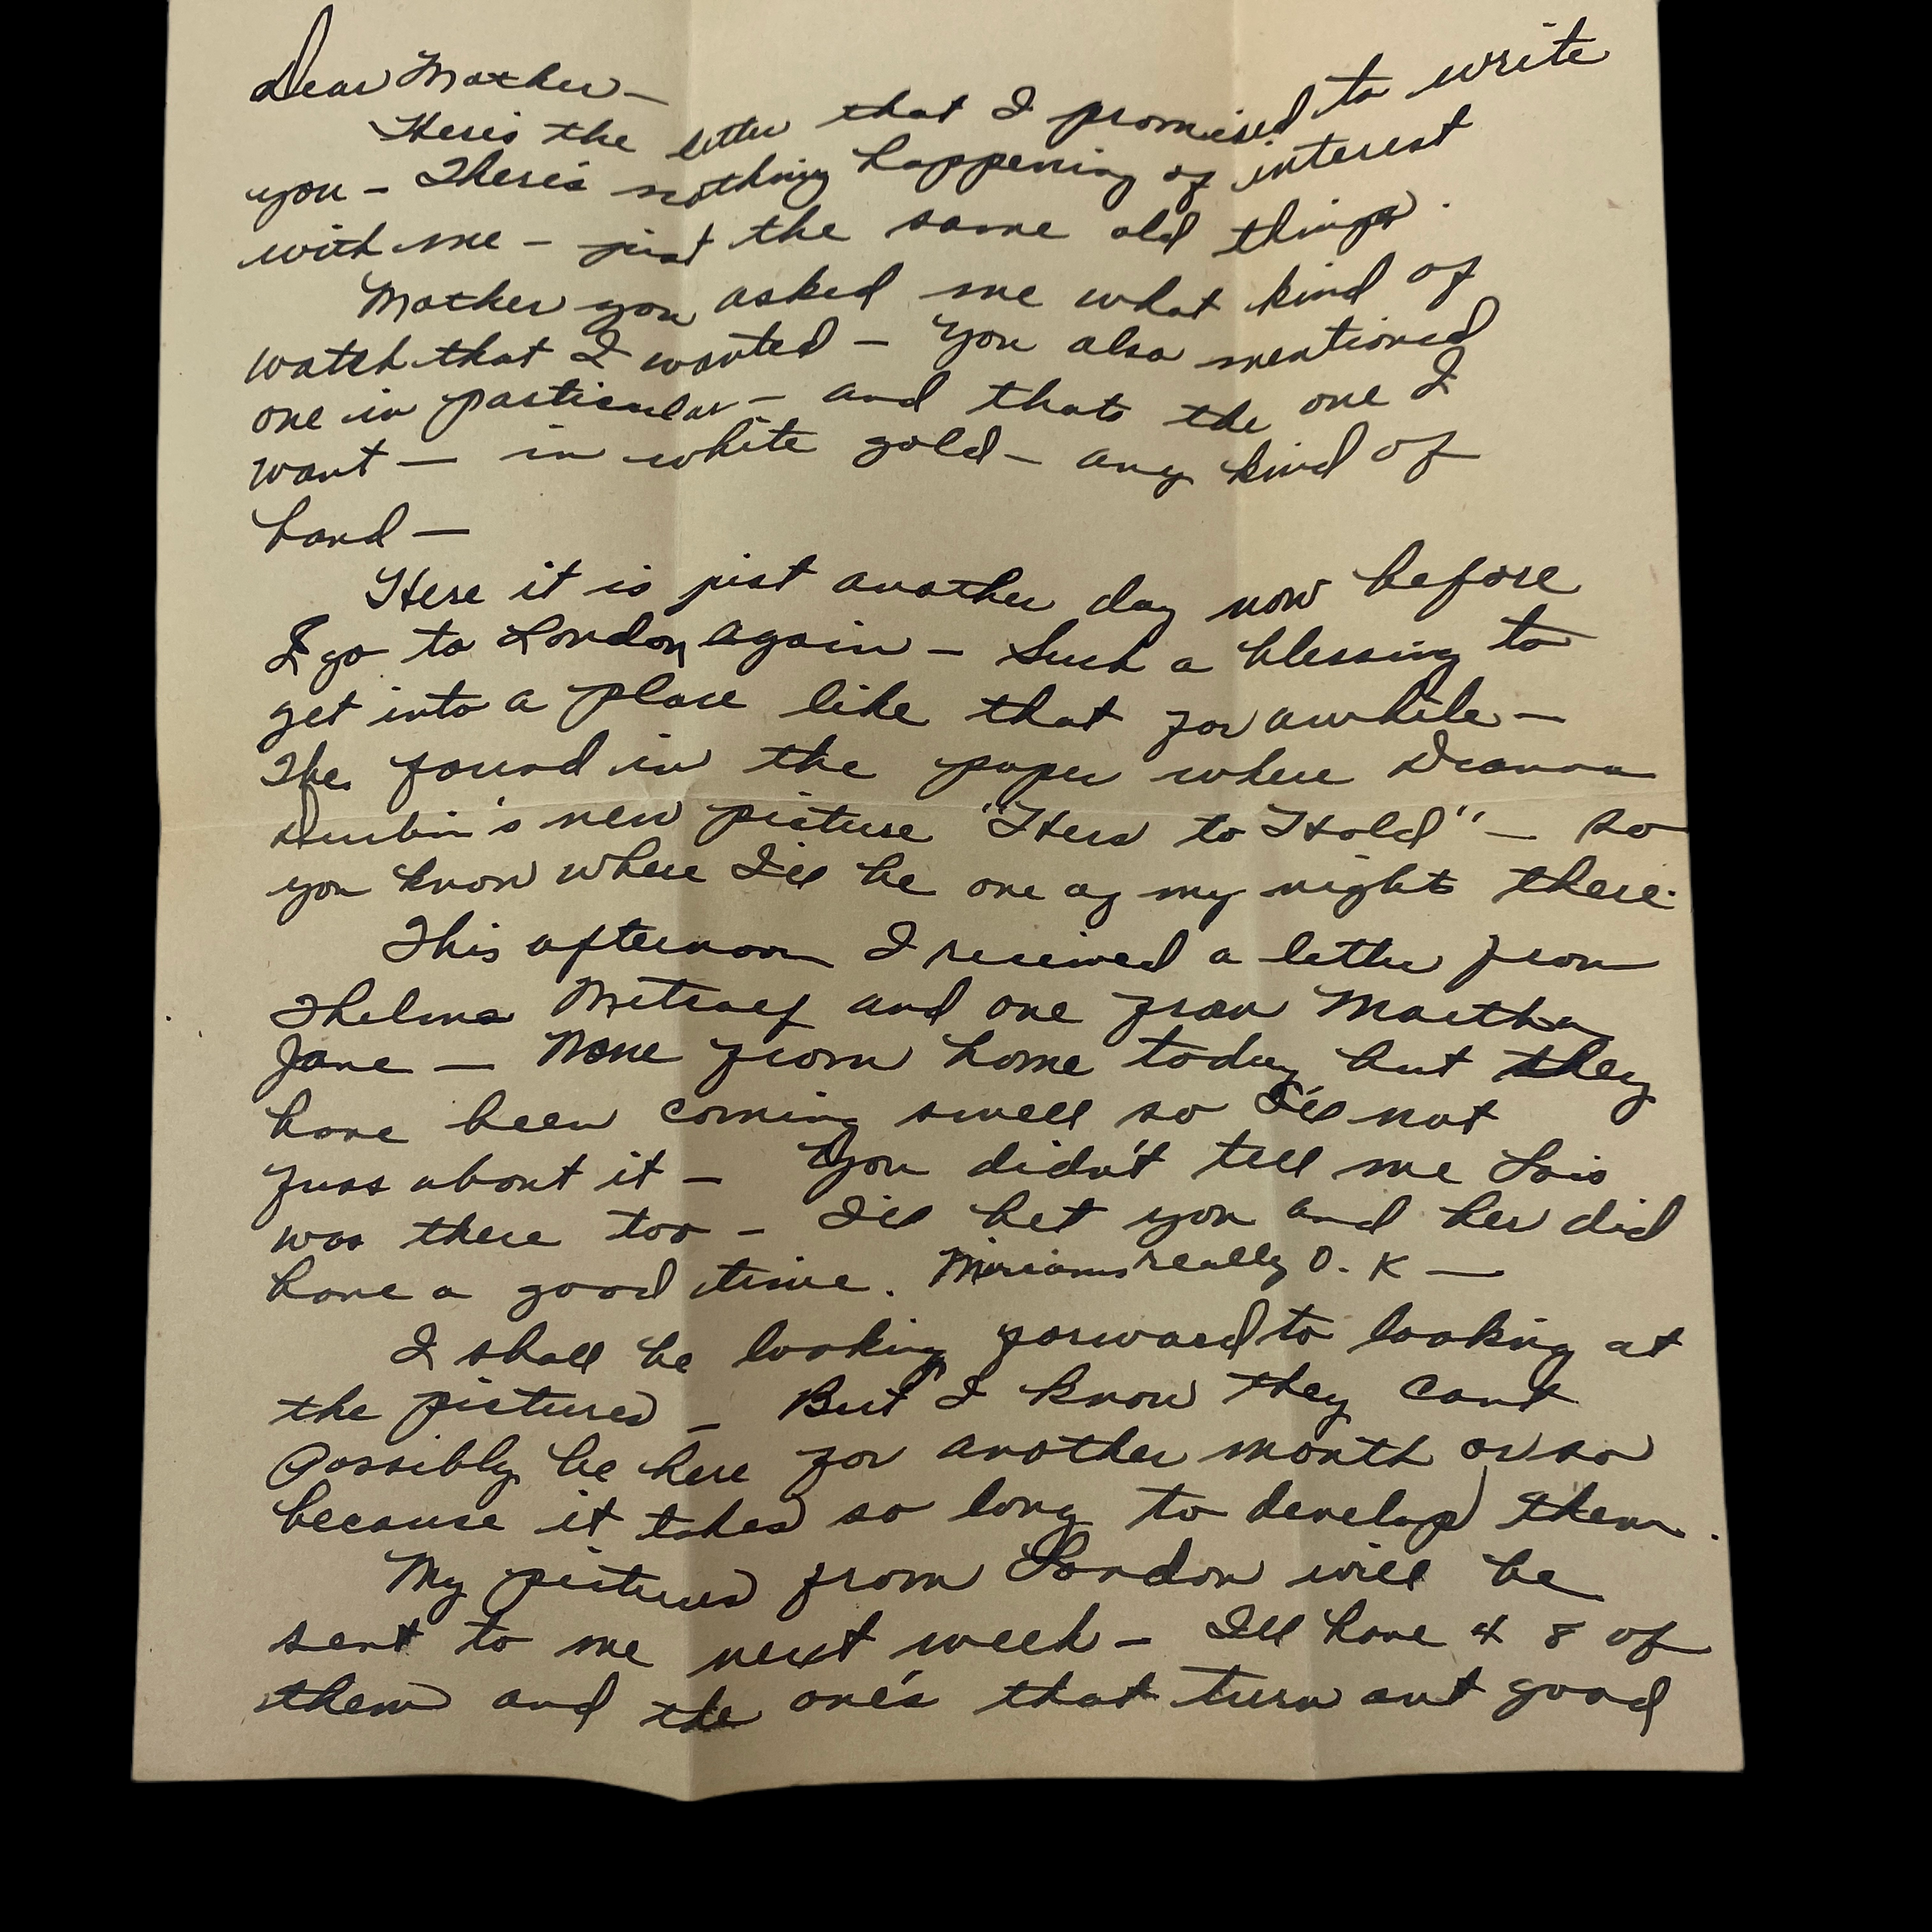 Dear Mother –
Here's the letter that I promised to write
you – There's nothing happening of interest
with me – just the same old things.
Mother you asked me what kind of
watch that I wanted – You also mentioned
one in particular – and thats the one I
want – in white gold – any kind of
band –
Here it is just another day now before
I go to London again – Such a blessing to
get into a place like that for awhile –
I've found in the paper where Deanna
Durbin's new picture "Hers to Hold" – so
you know where I'll be one of my nights there.
This afternoon I received a letter from
Thelma Metcalf and one from Martha
Jane – None from home today but they
have been coming swell so I'll not
fuss about it – You didn't tell me Lois
was there too – I'll bet you and her did
have a good time. Miriams really O.K –
I shall be looking forward to looking at
the pictures – But I know they cant
possibly be here for another month or so
because it takes so long to develop them.
My pictures from London will be
sent to me next week – I'll have 48 of
them and the one's that turn out good